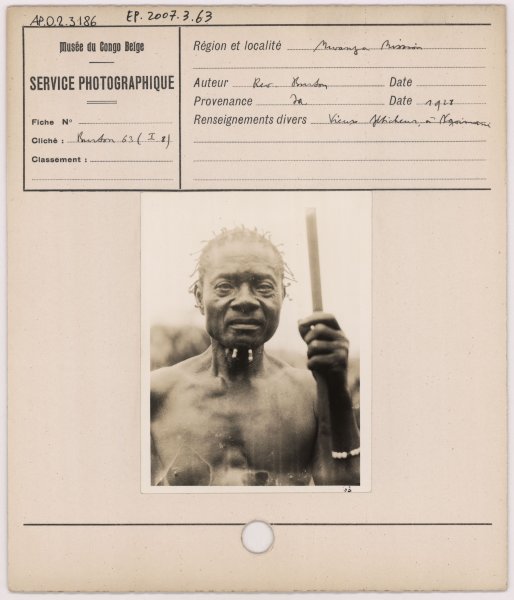 AP.0.2.3186
EP.2007.3.63
Musée du Congo Belge
SERVICE PHOTOGRAPHIQUE
Fiche N°
Cliché : Burton 63 (I 8)
Classement :
Région et localité Mwanza Mission
Auteur Rev. Burton Date
Provenance Id. Date 1928
Renseignements divers Vieux à